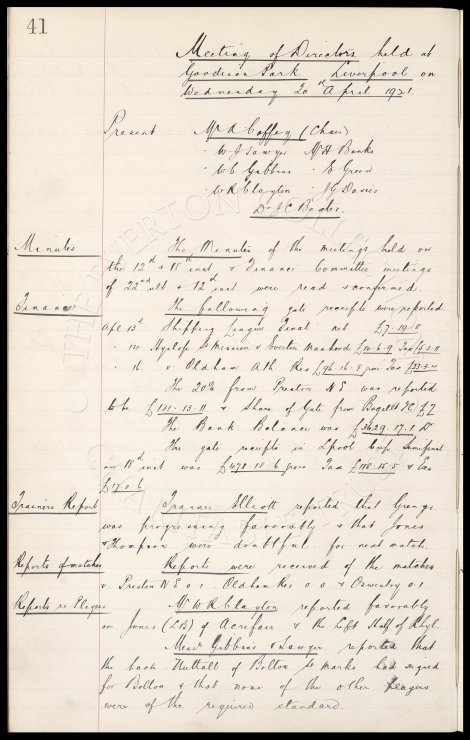 41
Meeting of Directors held at
Goodison Park Liverpool on
Wednesday 20th April 1921.
Present Mr A Coffey (Chair)
" W J Sawyer Mr H Banks
" W C Gibbins " E Green
" W R Clayton " J G Davies
Dr J C Baxter.
Minutes The Minutes of the meetings held on
the 12th & 18th inst & Finance Committee meetings
of 22nd ult & 12th inst were read & confirmed.
Finance The following gate receipts were reported
Apl 13th Shipping League Final net £7-19-8
" 14 & Everton Manhood £14-6-9 Tax
" 16 v Oldham Ath. Res £96-16-8 gross Tax
The 20% from Preston N.E was reported
to be £131-13-11 & Share of Gate from FC £7
The Bank Balance was £3629-17-1 Dr
The gate receipts in L'pool Cup Semifinal
on 18th inst was £478-18-6 gross Tax £118-15-5 & Exs
Trainers Report Trainer Elliott reported that Grange
was progressing favorably & that Jones
& Thompson were doubtful for next match.
Reports of matches Reports were received of the matches
v. Preston N E 0.1. Oldham Res 0.0 & Oswestry 0.1
Reports re Players Mr W R Clayton reported favorably
on Jones (LB) of Acrefair & the Left Half of Rhyl.
Messrs Gibbins & Sawyer reported that
the back Nuttall of Bolton St Marks had signed
for Bolton & that none of the other players
were of the required standard.